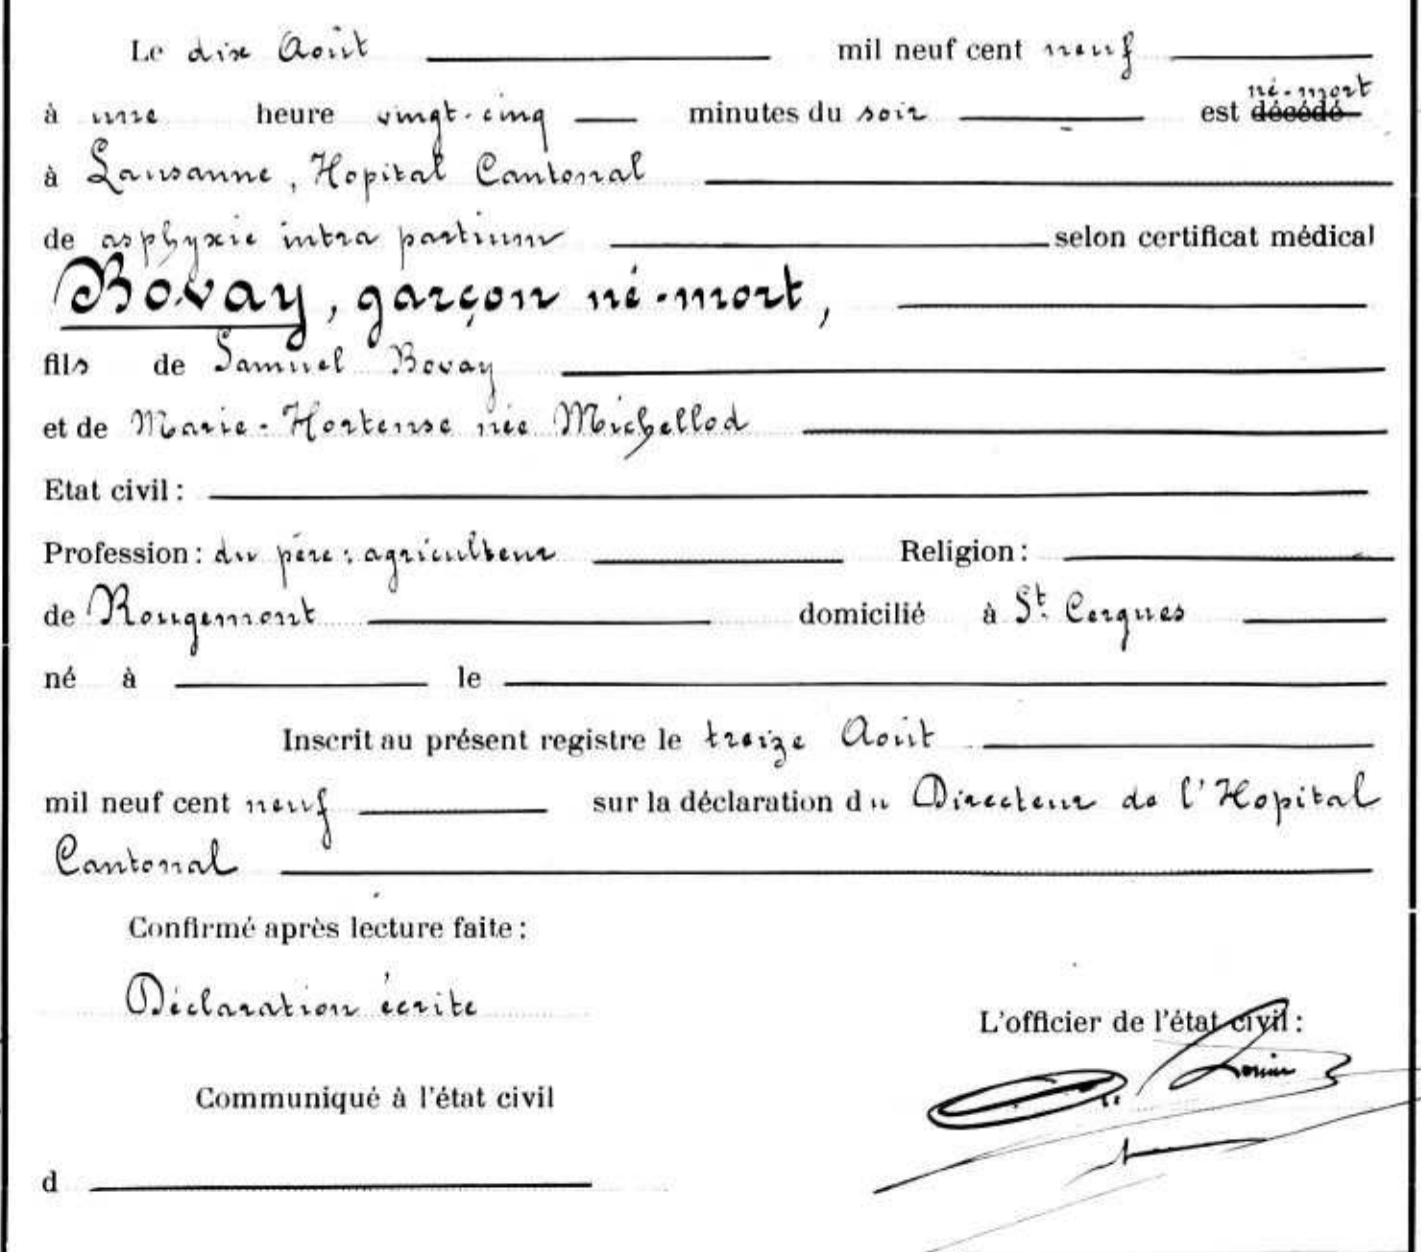 Le dix Août mil neuf cent neuf
né-mort
à une heure vingt-cinq minutes du soir est décédé
à Lausanne, Hopital Cantonal
de asphyxie intra partium selon certificat médical
Bovay, garçon né-mort,
fils de Samuel Bovay
et de Marie-Hortense née Michellod
Etat civil :
Profession : du père : agriculteur Religion :
de Rougemont domicilié à St. Cergues
né à le
Inscrit au présent registre le treize Août
mil neuf cent neuf sur la déclaration du Directeur de l'Hopital
Cantonal
Confirmé après lecture faite :
Déclaration écrite
L'officier de l'état civil :
Communiqué à l'état civil
d